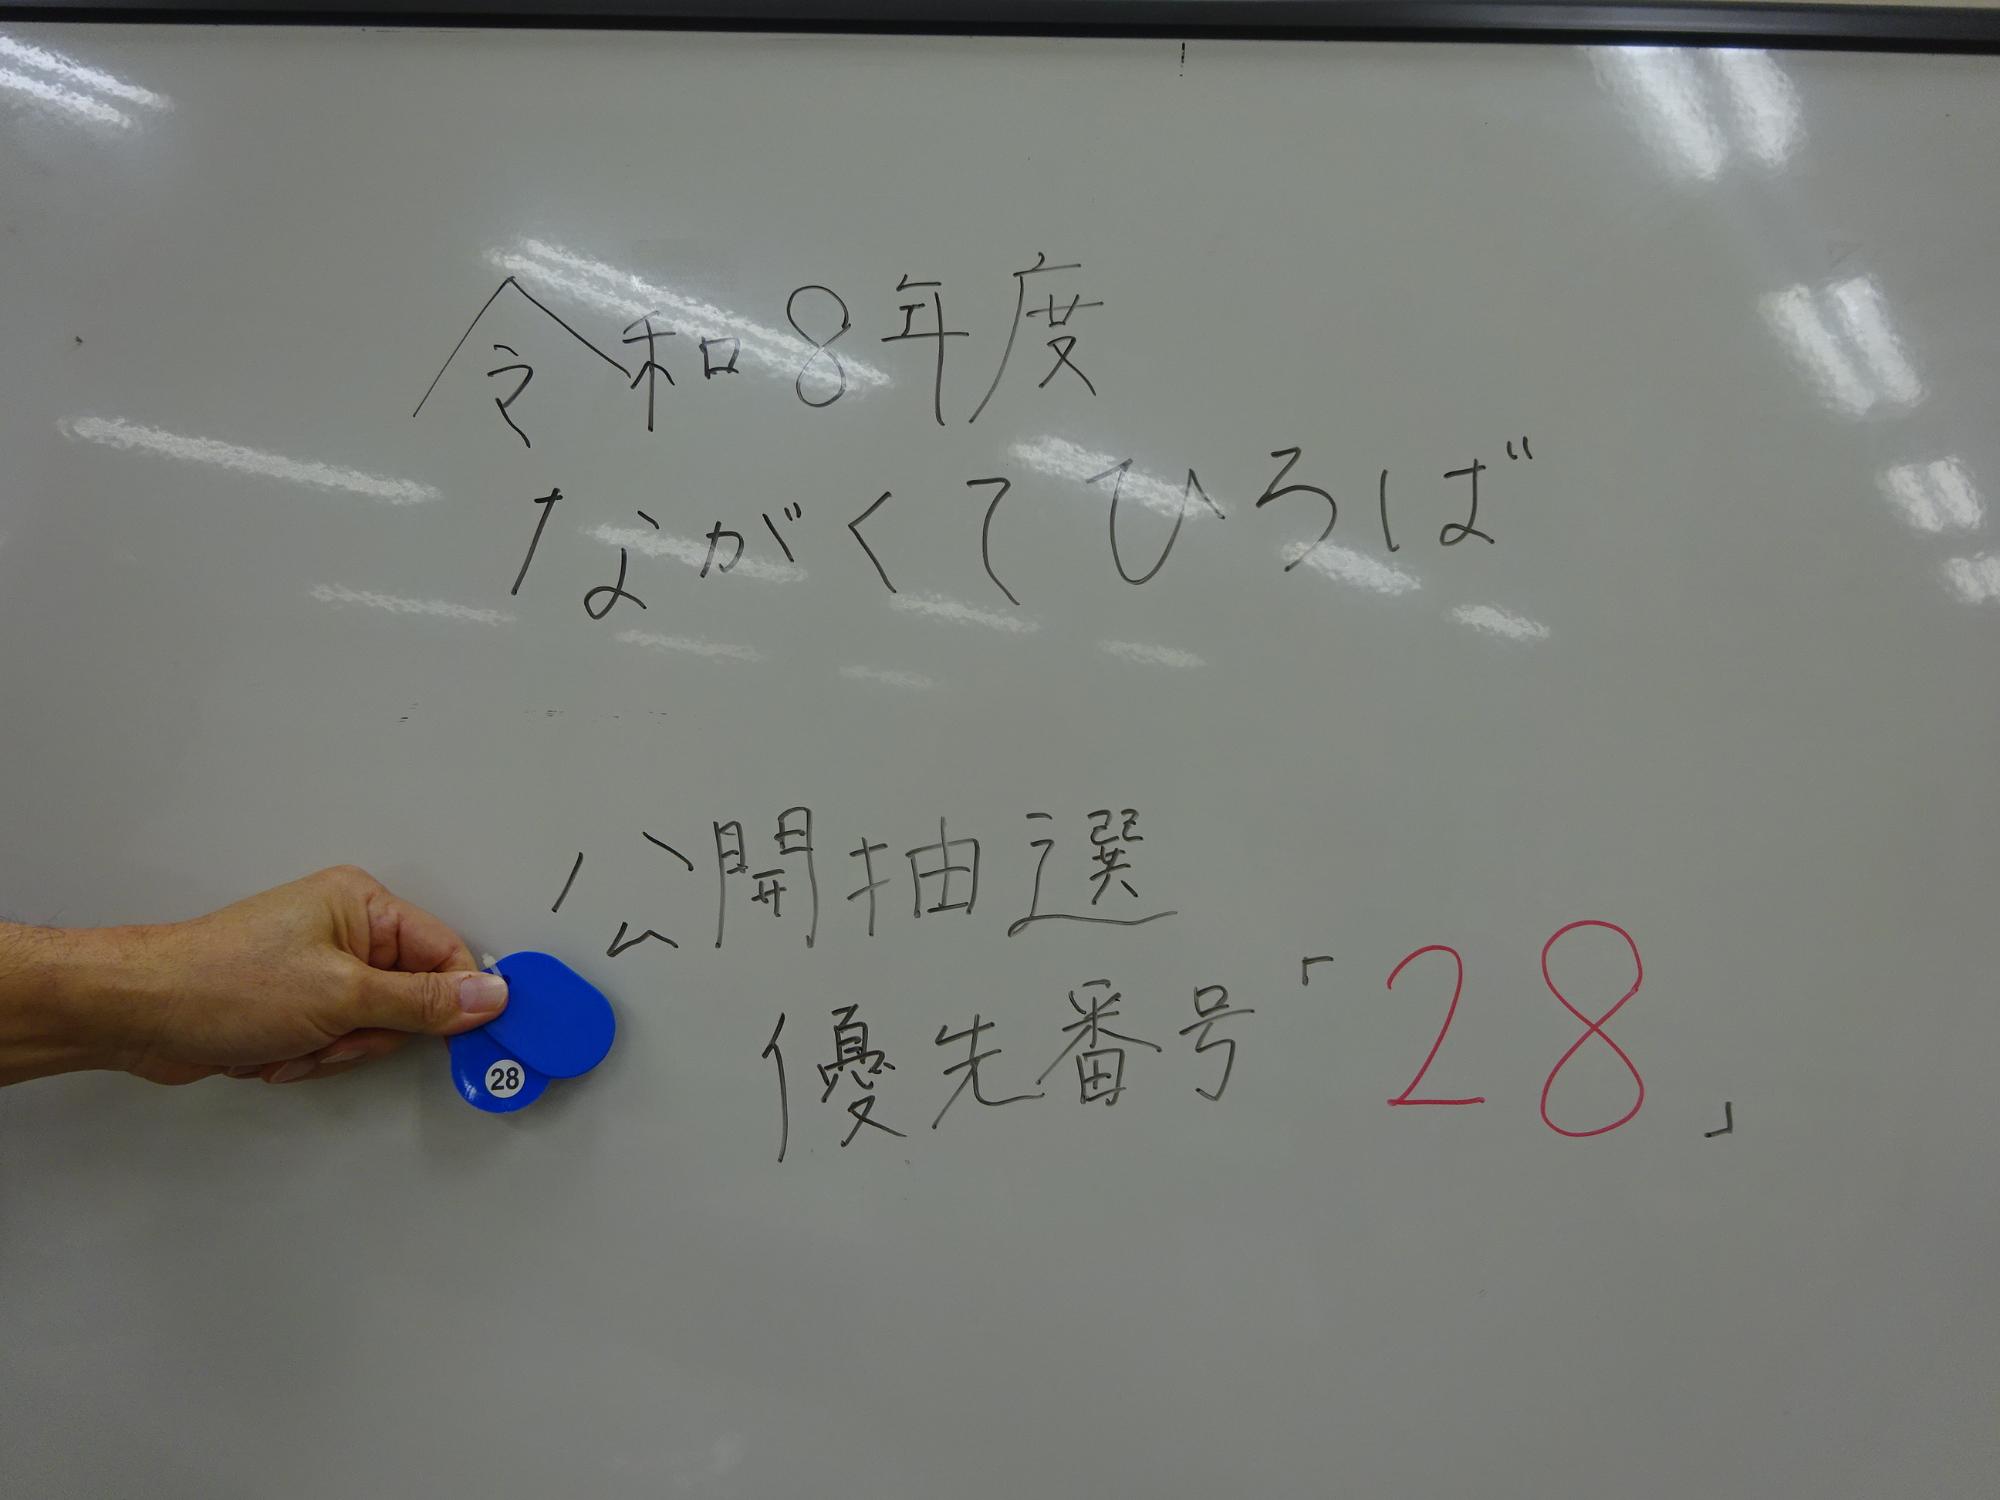 令和8年度
ながくてひろば
公開抽選
優先番号「28」
28